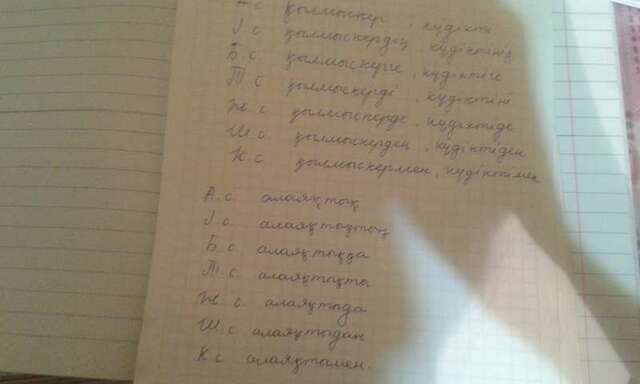 А.с қылмыскер, күдікті
І.с қылмыскердің, күдіктінің
Б.с қылмыскерге, күдіктіге
Т.с қылмыскерді, күдіктіні
Ж.с қылмыскерде, күдіктіде
Ш.с қылмыскерден, күдіктіден
К.с қылмыскермен, күдіктімен
А.с алаяқтық
І.с алаяқтықтың
Б.с алаяқтыққа
Т.с алаяқтықты
Ж.с алаяқтыда
Ш.с алаяқтыдан
К.с алаяқтымен